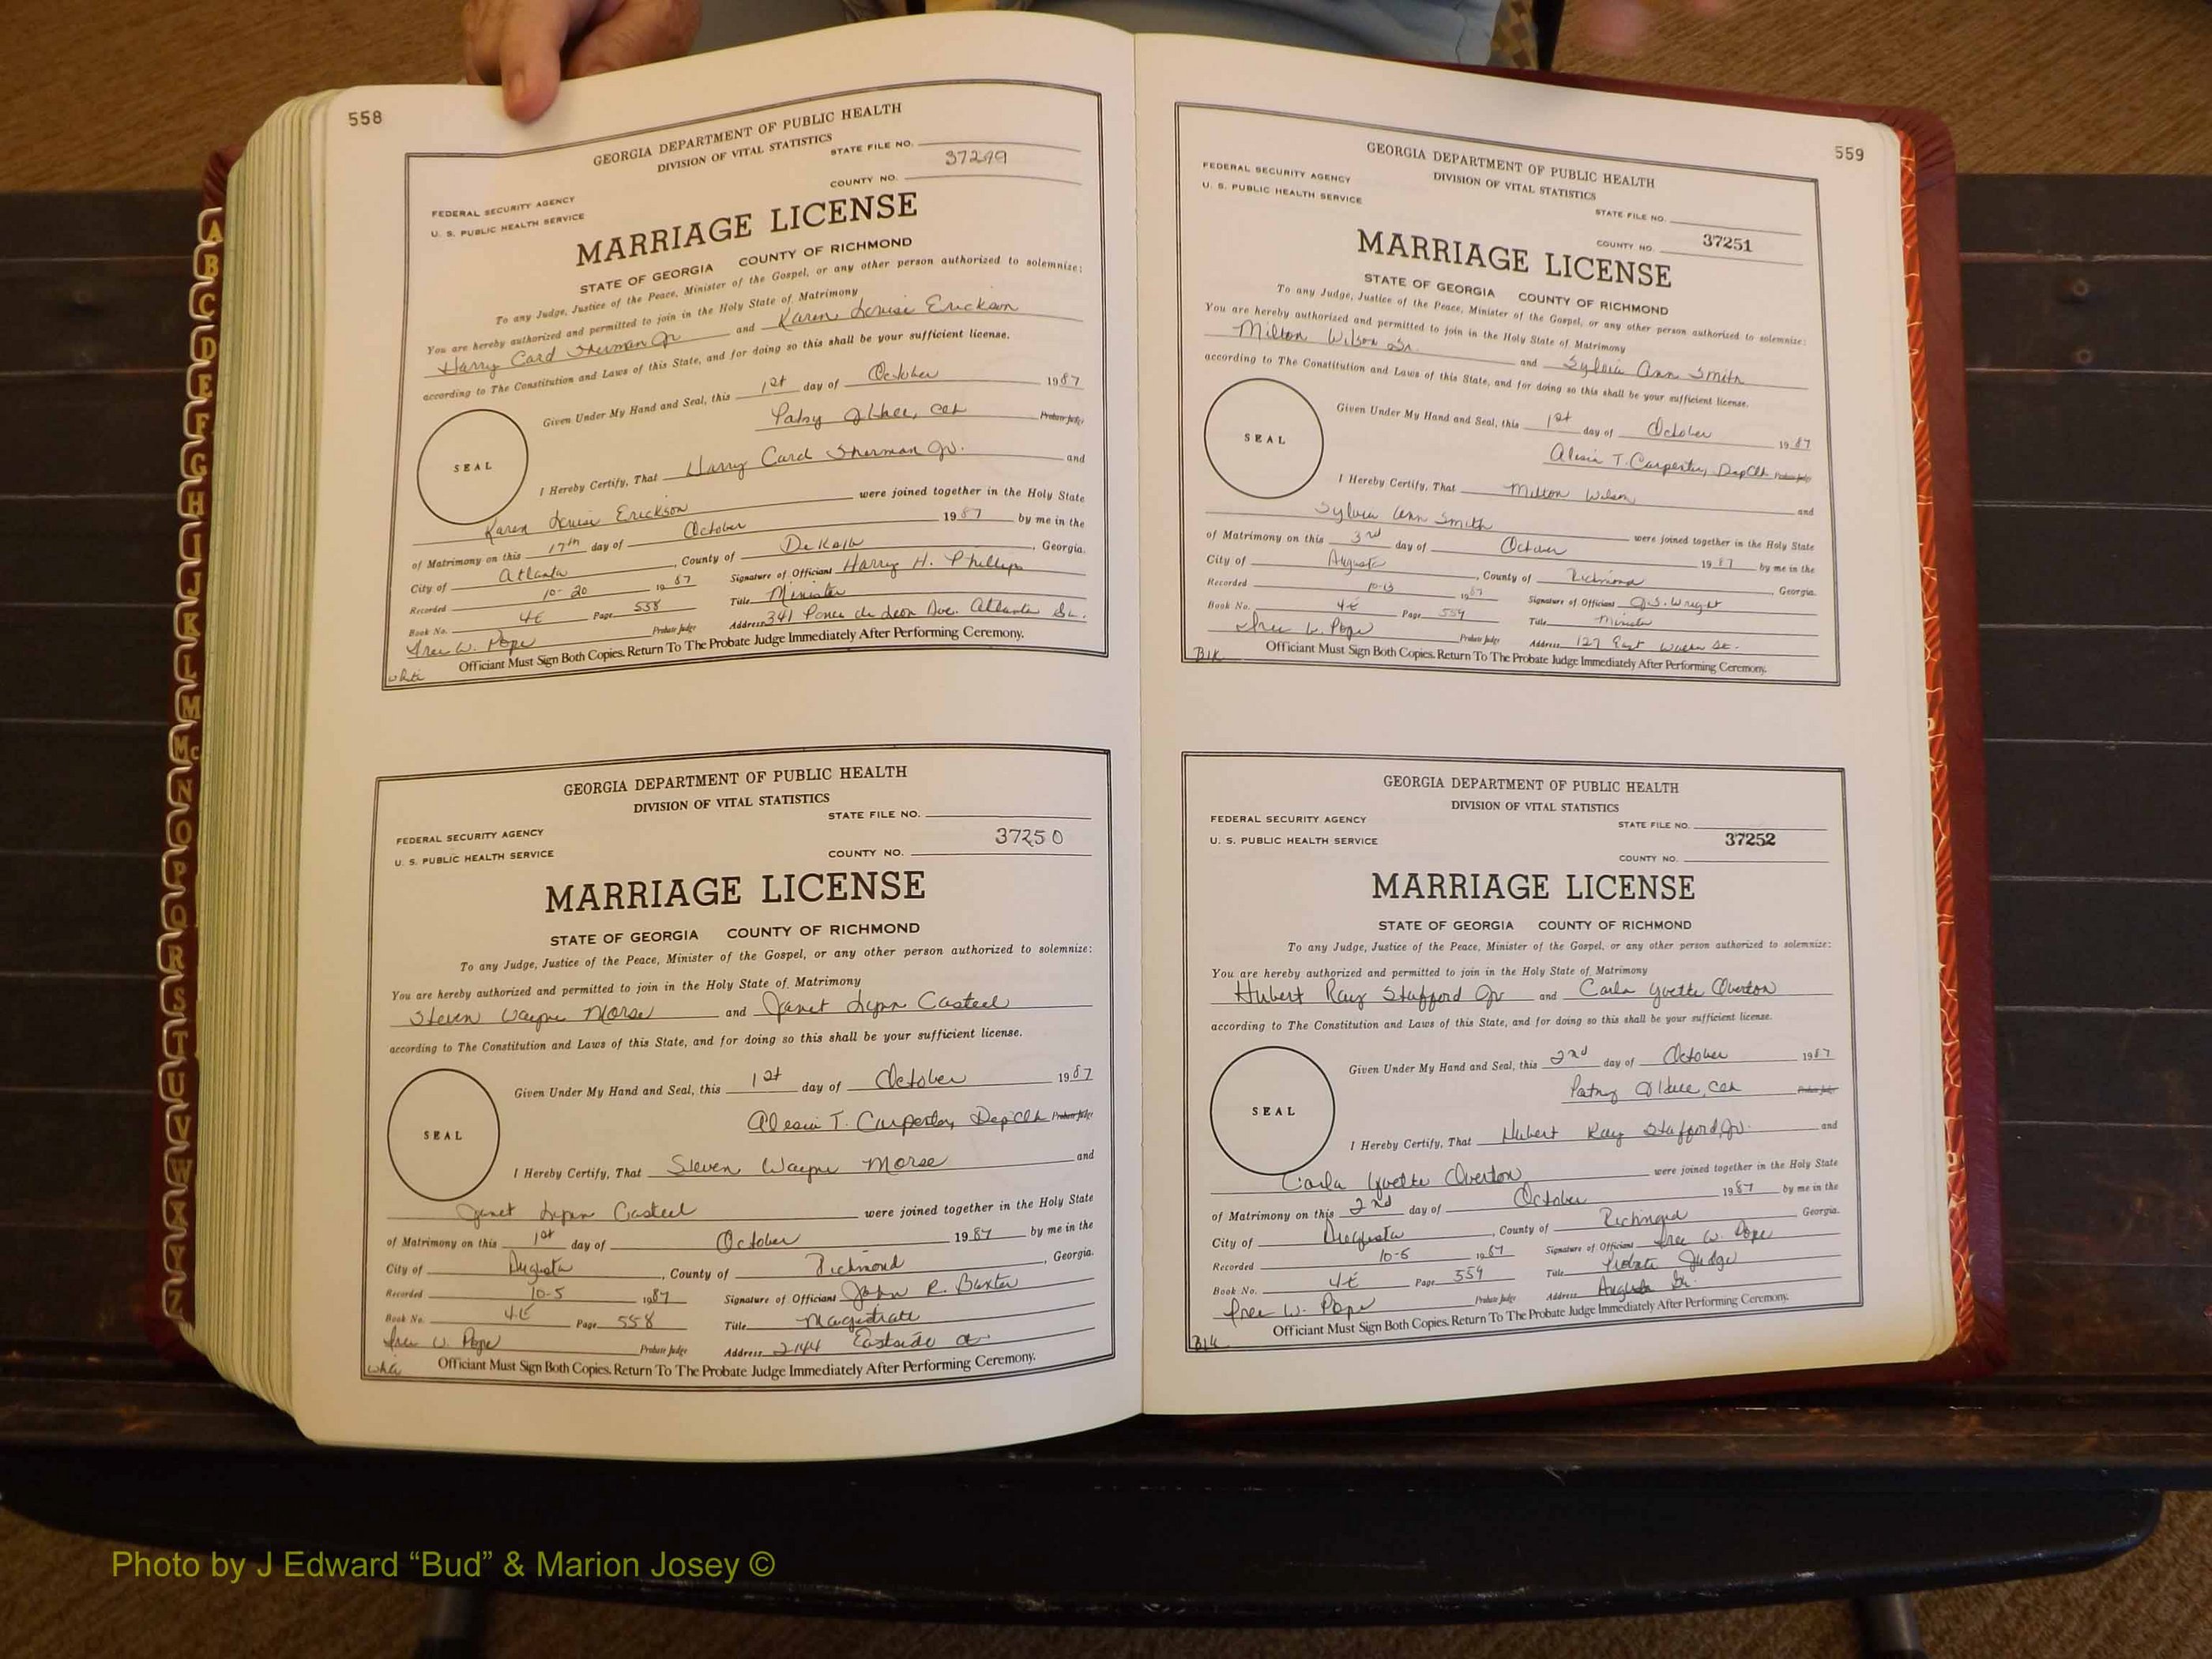 558
GEORGIA DEPARTMENT OF PUBLIC HEALTH
DIVISION OF VITAL STATISTICS
STATE FILE NO.
37249
COUNTY NO.
FEDERAL SECURITY AGENCY
U. S. PUBLIC HEALTH SERVICE
MARRIAGE LICENSE
STATE OF GEORGIA COUNTY OF RICHMOND
To any Judge, Justice of the Peace, Minister of the Gospel, or any other person authorized to solemnize:
You are hereby authorized and permitted to join in the Holy State of Matrimony
Harry Card Sherman Jr and Karen Louise Erickson
according to The Constitution and Laws of this State, and for doing so this shall be your sufficient license.
Given Under My Hand and Seal, this 1st day of October 1987
Patsy Probate Judge
SEAL
I Hereby Certify, That Harry Card Sherman Jr. and
Karen Louise Erickson were joined together in the Holy State
of Matrimony on this 17th day of October 1987 by me in the
City of Atlanta, County of DeKalb, Georgia.
Recorded 10-20 1987 Signature of Officiant Harry H. Phillips
Book No. 4E Page 558 Title Minister
W. Pope Probate Judge Address 341 Ponce de Leon Ave. Atlanta Ga.
Officiant Must Sign Both Copies. Return To The Probate Judge Immediately After Performing Ceremony.
white
GEORGIA DEPARTMENT OF PUBLIC HEALTH
DIVISION OF VITAL STATISTICS
STATE FILE NO.
37250
COUNTY NO.
FEDERAL SECURITY AGENCY
U. S. PUBLIC HEALTH SERVICE
MARRIAGE LICENSE
STATE OF GEORGIA COUNTY OF RICHMOND
To any Judge, Justice of the Peace, Minister of the Gospel, or any other person authorized to solemnize:
You are hereby authorized and permitted to join in the Holy State of Matrimony
Steven Wayne Morse and Janet Lynn Casteel
according to The Constitution and Laws of this State, and for doing so this shall be your sufficient license.
Given Under My Hand and Seal, this 1st day of October 1987
Alesia T. Carpenter, Dep Clk Probate Judge
SEAL
I Hereby Certify, That Steven Wayne Morse and
Janet Lynn Casteel were joined together in the Holy State
of Matrimony on this 1st day of October 1987 by me in the
City of Augusta, County of Richmond, Georgia.
Recorded 10-5 1987 Signature of Officiant John R. Baxter
Book No. 4E Page 558 Title Magistrate
W. Pope Probate Judge Address 2144 Eastside Ct.
Officiant Must Sign Both Copies. Return To The Probate Judge Immediately After Performing Ceremony.
white
559
GEORGIA DEPARTMENT OF PUBLIC HEALTH
DIVISION OF VITAL STATISTICS
FEDERAL SECURITY AGENCY
U. S. PUBLIC HEALTH SERVICE
STATE FILE NO.
COUNTY NO. 37251
MARRIAGE LICENSE
STATE OF GEORGIA COUNTY OF RICHMOND
To any Judge, Justice of the Peace, Minister of the Gospel, or any other person authorized to solemnize:
You are hereby authorized and permitted to join in the Holy State of Matrimony
Milton Wilson Sr. and Sylvia Ann Smith
according to The Constitution and Laws of this State, and for doing so this shall be your sufficient license.
Given Under My Hand and Seal, this 1st day of October 1987
Alesia T. Carpenter, Dep Clk Probate Judge
SEAL
I Hereby Certify, That Milton Wilson and
Sylvia Ann Smith were joined together in the Holy State
of Matrimony on this 3rd day of October 1987 by me in the
City of Augusta, County of Richmond, Georgia.
Recorded 10-13 1987 Signature of Officiant Wright
Book No. 4E Page 559 Title Minister
W. Pope Probate Judge Address 127 East St.
Officiant Must Sign Both Copies. Return To The Probate Judge Immediately After Performing Ceremony.
Blk
GEORGIA DEPARTMENT OF PUBLIC HEALTH
DIVISION OF VITAL STATISTICS
FEDERAL SECURITY AGENCY
U. S. PUBLIC HEALTH SERVICE
STATE FILE NO.
37252
COUNTY NO.
MARRIAGE LICENSE
STATE OF GEORGIA COUNTY OF RICHMOND
To any Judge, Justice of the Peace, Minister of the Gospel, or any other person authorized to solemnize:
You are hereby authorized and permitted to join in the Holy State of Matrimony
Hubert Ray Stafford Jr and Carla Yvette Overton
according to The Constitution and Laws of this State, and for doing so this shall be your sufficient license.
Given Under My Hand and Seal, this 2nd day of October 1987
Patsy Probate Judge
SEAL
I Hereby Certify, That Hubert Ray Stafford, Jr. and
Carla Yvette Overton were joined together in the Holy State
of Matrimony on this 2nd day of October 1987 by me in the
City of Augusta, County of Richmond, Georgia.
Recorded 10-5 1987 Signature of Officiant W. Pope
Book No. 4E Page 559 Title Probate Judge
W. Pope Probate Judge Address Augusta Ga.
Officiant Must Sign Both Copies. Return To The Probate Judge Immediately After Performing Ceremony.
Blk
A
B
C
D
E
F
G
H
I
J
K
L
M
Mc
N
O
P
Q
R
S
T
U
V
W
X
Y
Z
Photo by J Edward “Bud” & Marion Josey ©